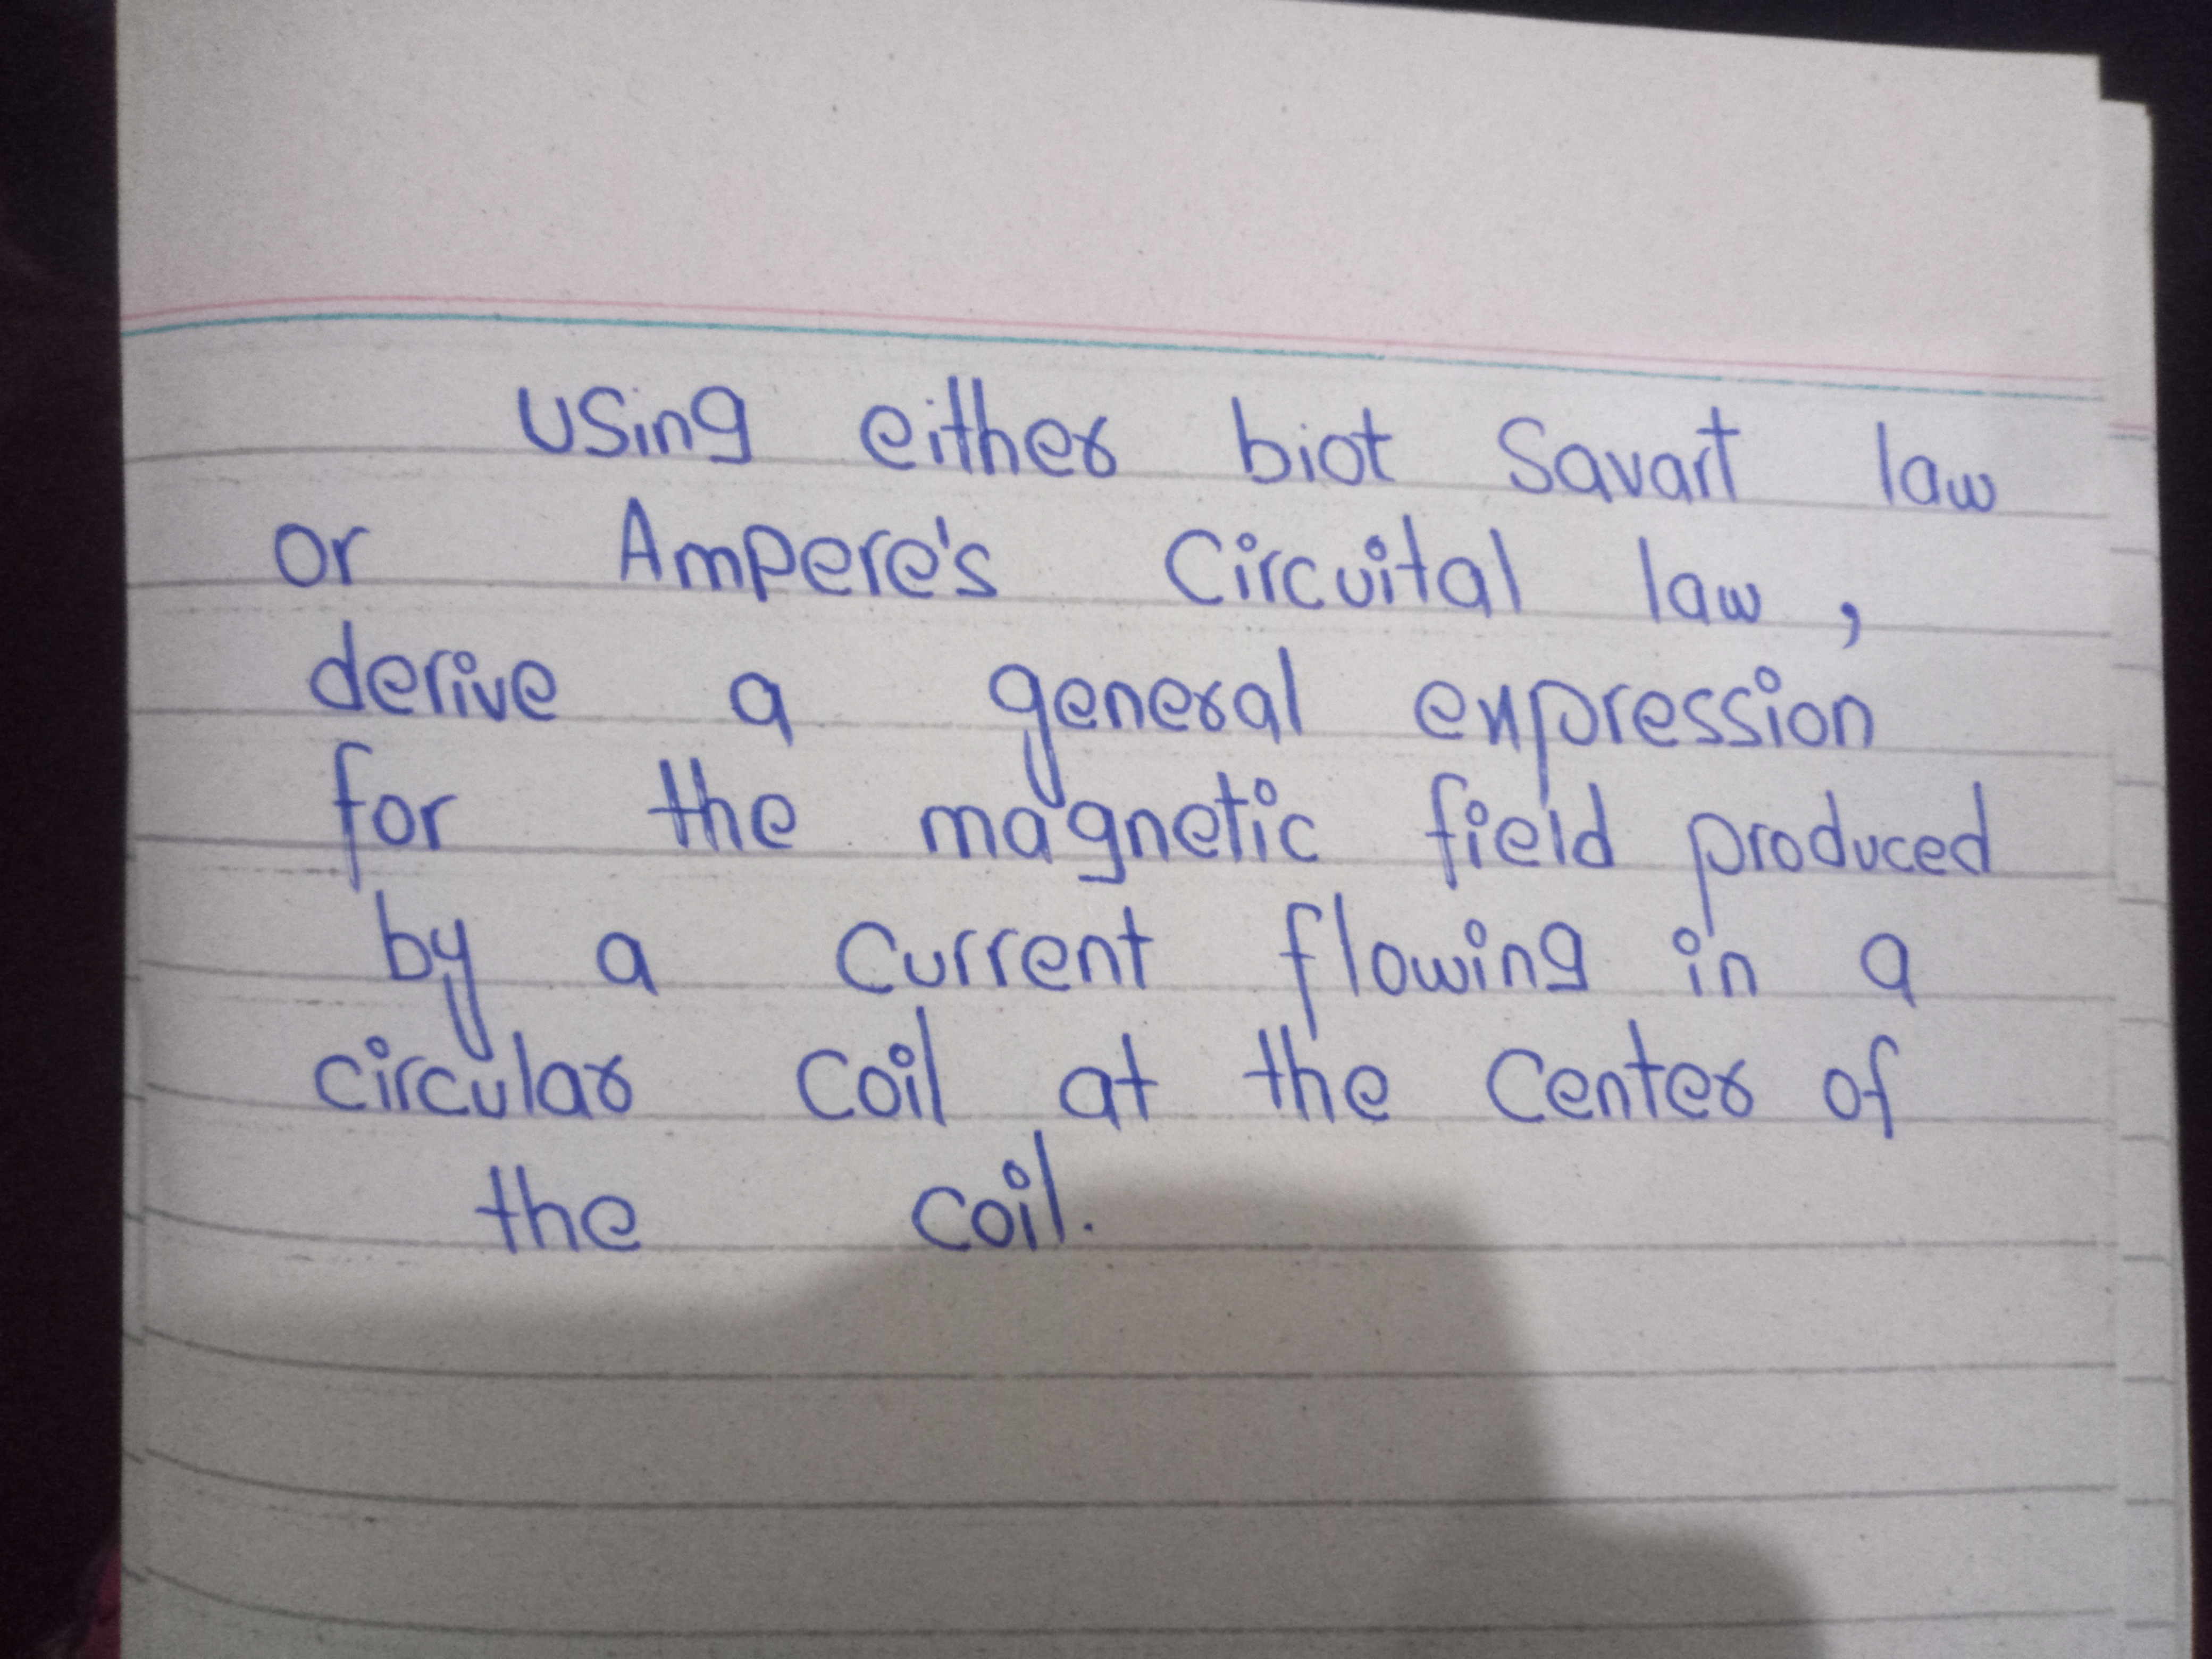 using either biot Savart law
or Ampere's Circuital law,
derive a general expression
for the magnetic field produced
by a current flowing in a
circular coil at the center of
the coil.